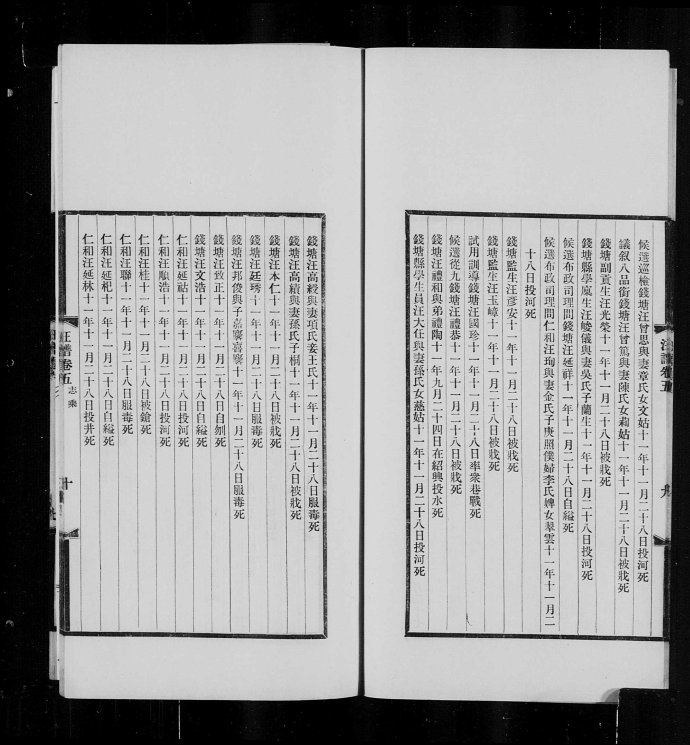 候選巡檢錢塘汪曾思與妻章氏女文姑十一年十一月二十八日投河死
議叙八品銜錢塘汪曾篤與妻陳氏女莉姑十一年十一月二十八日被戕死
錢塘副貢生汪光榮十一年十一月二十八日被戕死
錢塘縣學廩生汪峻儀與妻吳氏子蘭生十一年十一月二十八日投河死
候選布政司理問錢塘汪延祥十一年十一月二十八日自縊死
候選布政司理問仁和汪珣與妻金氏子庚照僕婦李氏婢女翠雲十一年十一月二
十八日投河死
錢塘監生汪彥安十一年十一月二十八日被戕死
錢塘監生汪玉嶂十一年十一月二十八日被戕死
試用訓導錢塘汪國珍十一年十一月二十八日率衆巷戰死
候選從九錢塘汪禮恭十一年十一月二十八日被戕死
錢塘汪禮和與弟禮陶十一年九月二十四日在紹興投水死
錢塘縣學生員汪大任與妻孫氏女慈姑十一年十一月二十八日投河死
汪譜卷五
九
錢塘汪高綬與妻項氏妾王氏十一年十一月二十八日服毒死
錢塘汪高績與妻孫氏子桐十一年十一月二十八日被戕死
錢塘汪本仁十一年十一月二十八日被戕死
錢塘汪廷琇十一年十一月二十八日服毒死
錢塘汪邦俊與子嘉麐喜麐十一年十一月二十八日服毒死
錢塘汪致正十一年十一月二十八日自刎死
錢塘汪文浩十一年十一月二十八日自縊死
仁和汪延祜十一年十一月二十八日投河死
仁和汪順浩十一年十一月二十八日投河死
仁和汪桂十一年十一月二十八日被鎗死
仁和汪聯十一年十一月二十八日服毒死
仁和汪延杞十一年十一月二十八日自縊死
仁和汪延林十一年十一月二十八日投井死
汪譜卷五
志乘
十